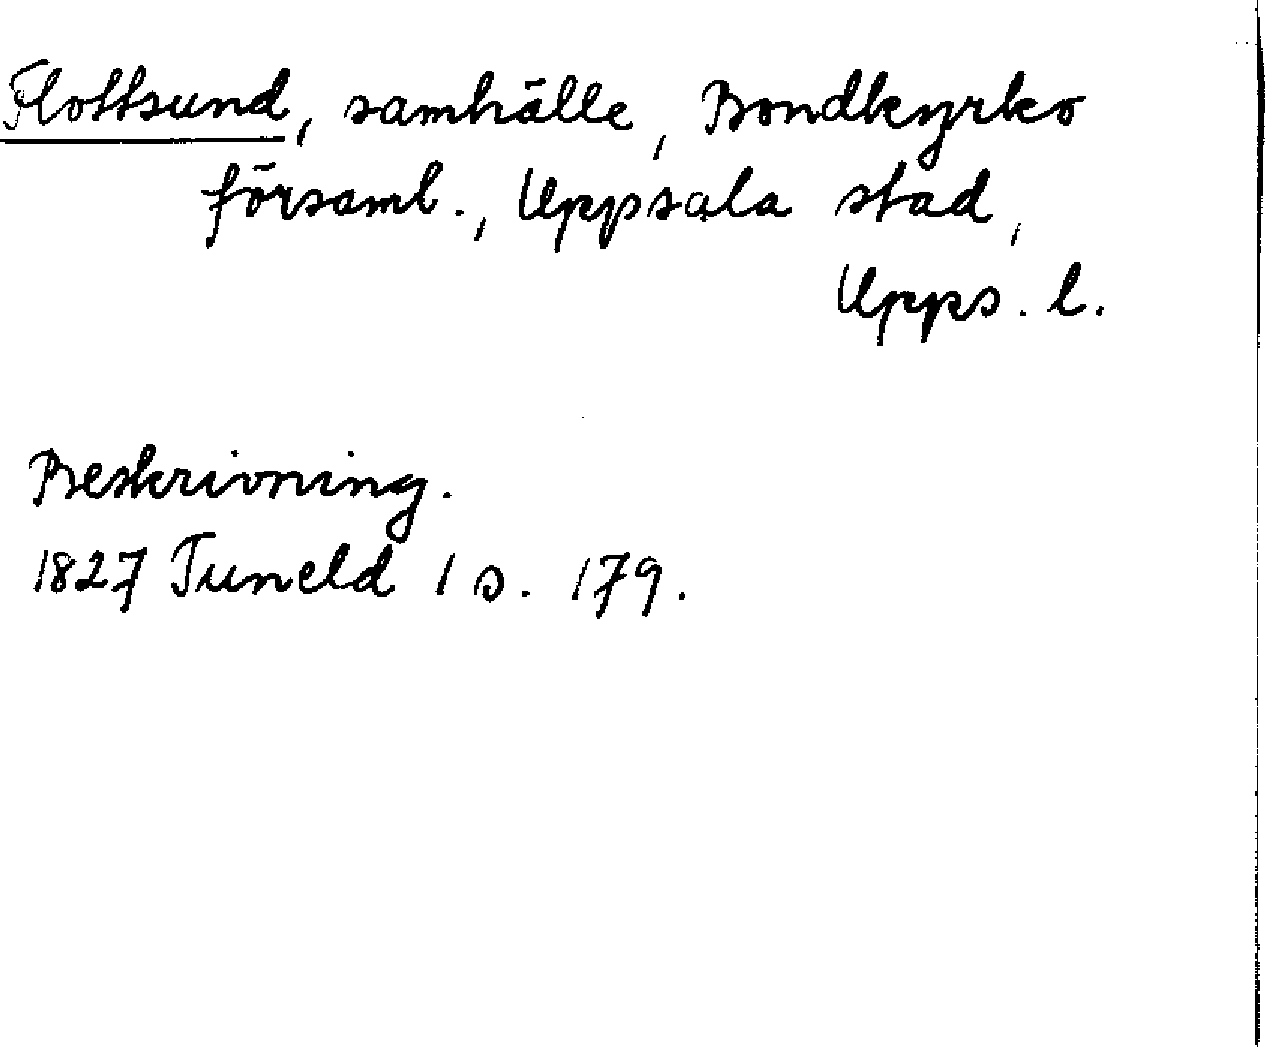 Flottsund, samhälle, Bondkyrko
församl., Uppsala stad,
Upps. l.
Beskrivning.
1827 Tuneld 1 s. 179.